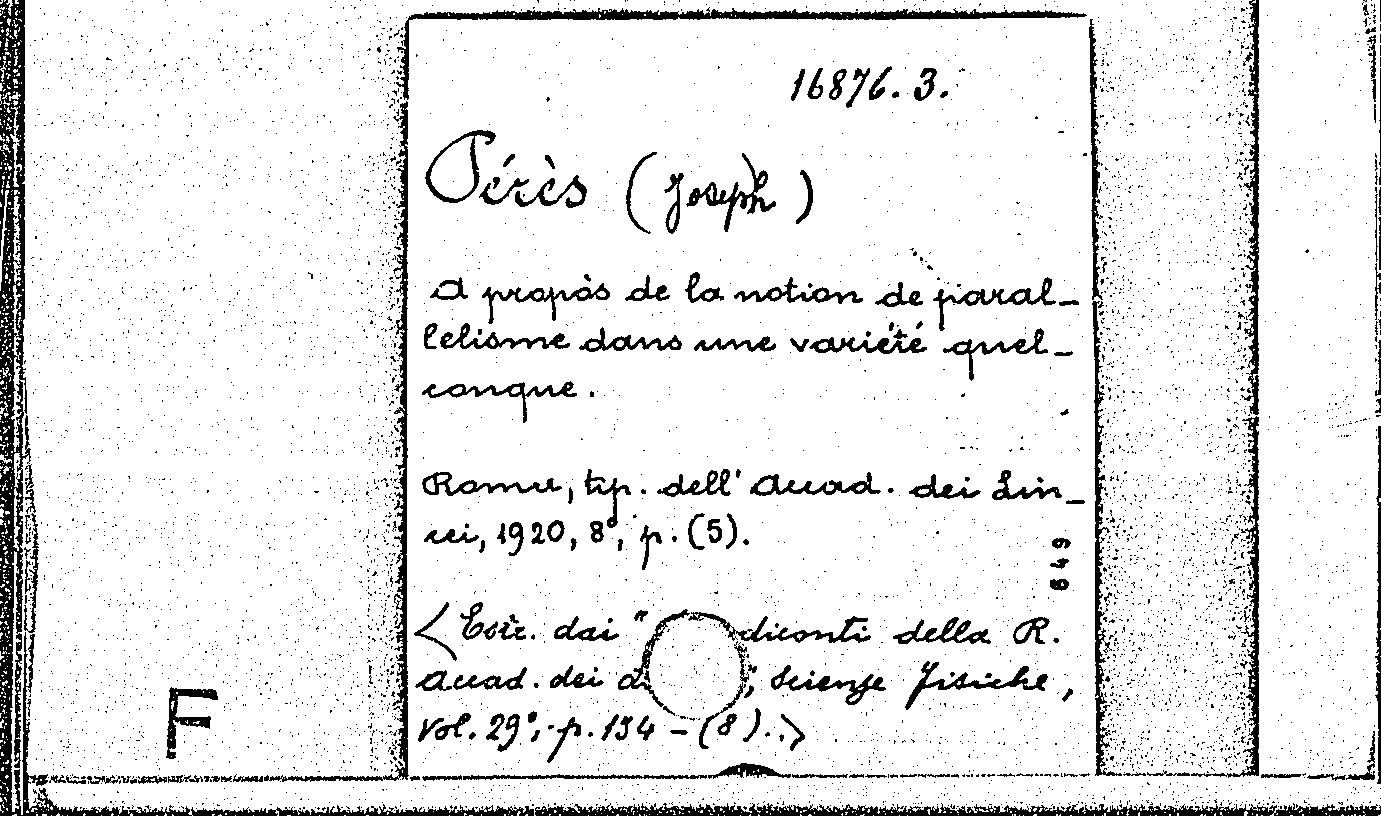 16876. 3.
Pérès (Joseph)
A propòs de la notion de paral-
lelisme dans une variété quel-
conque.
Roma, tip. dell' Accad. dei Lin-
cei, 1920, 8°, p. (5).
649
<Estr. dai " diconti della R.
Accad. dei ", Scienze fisiche,
vol. 29°, p. 134 - (8).>
F